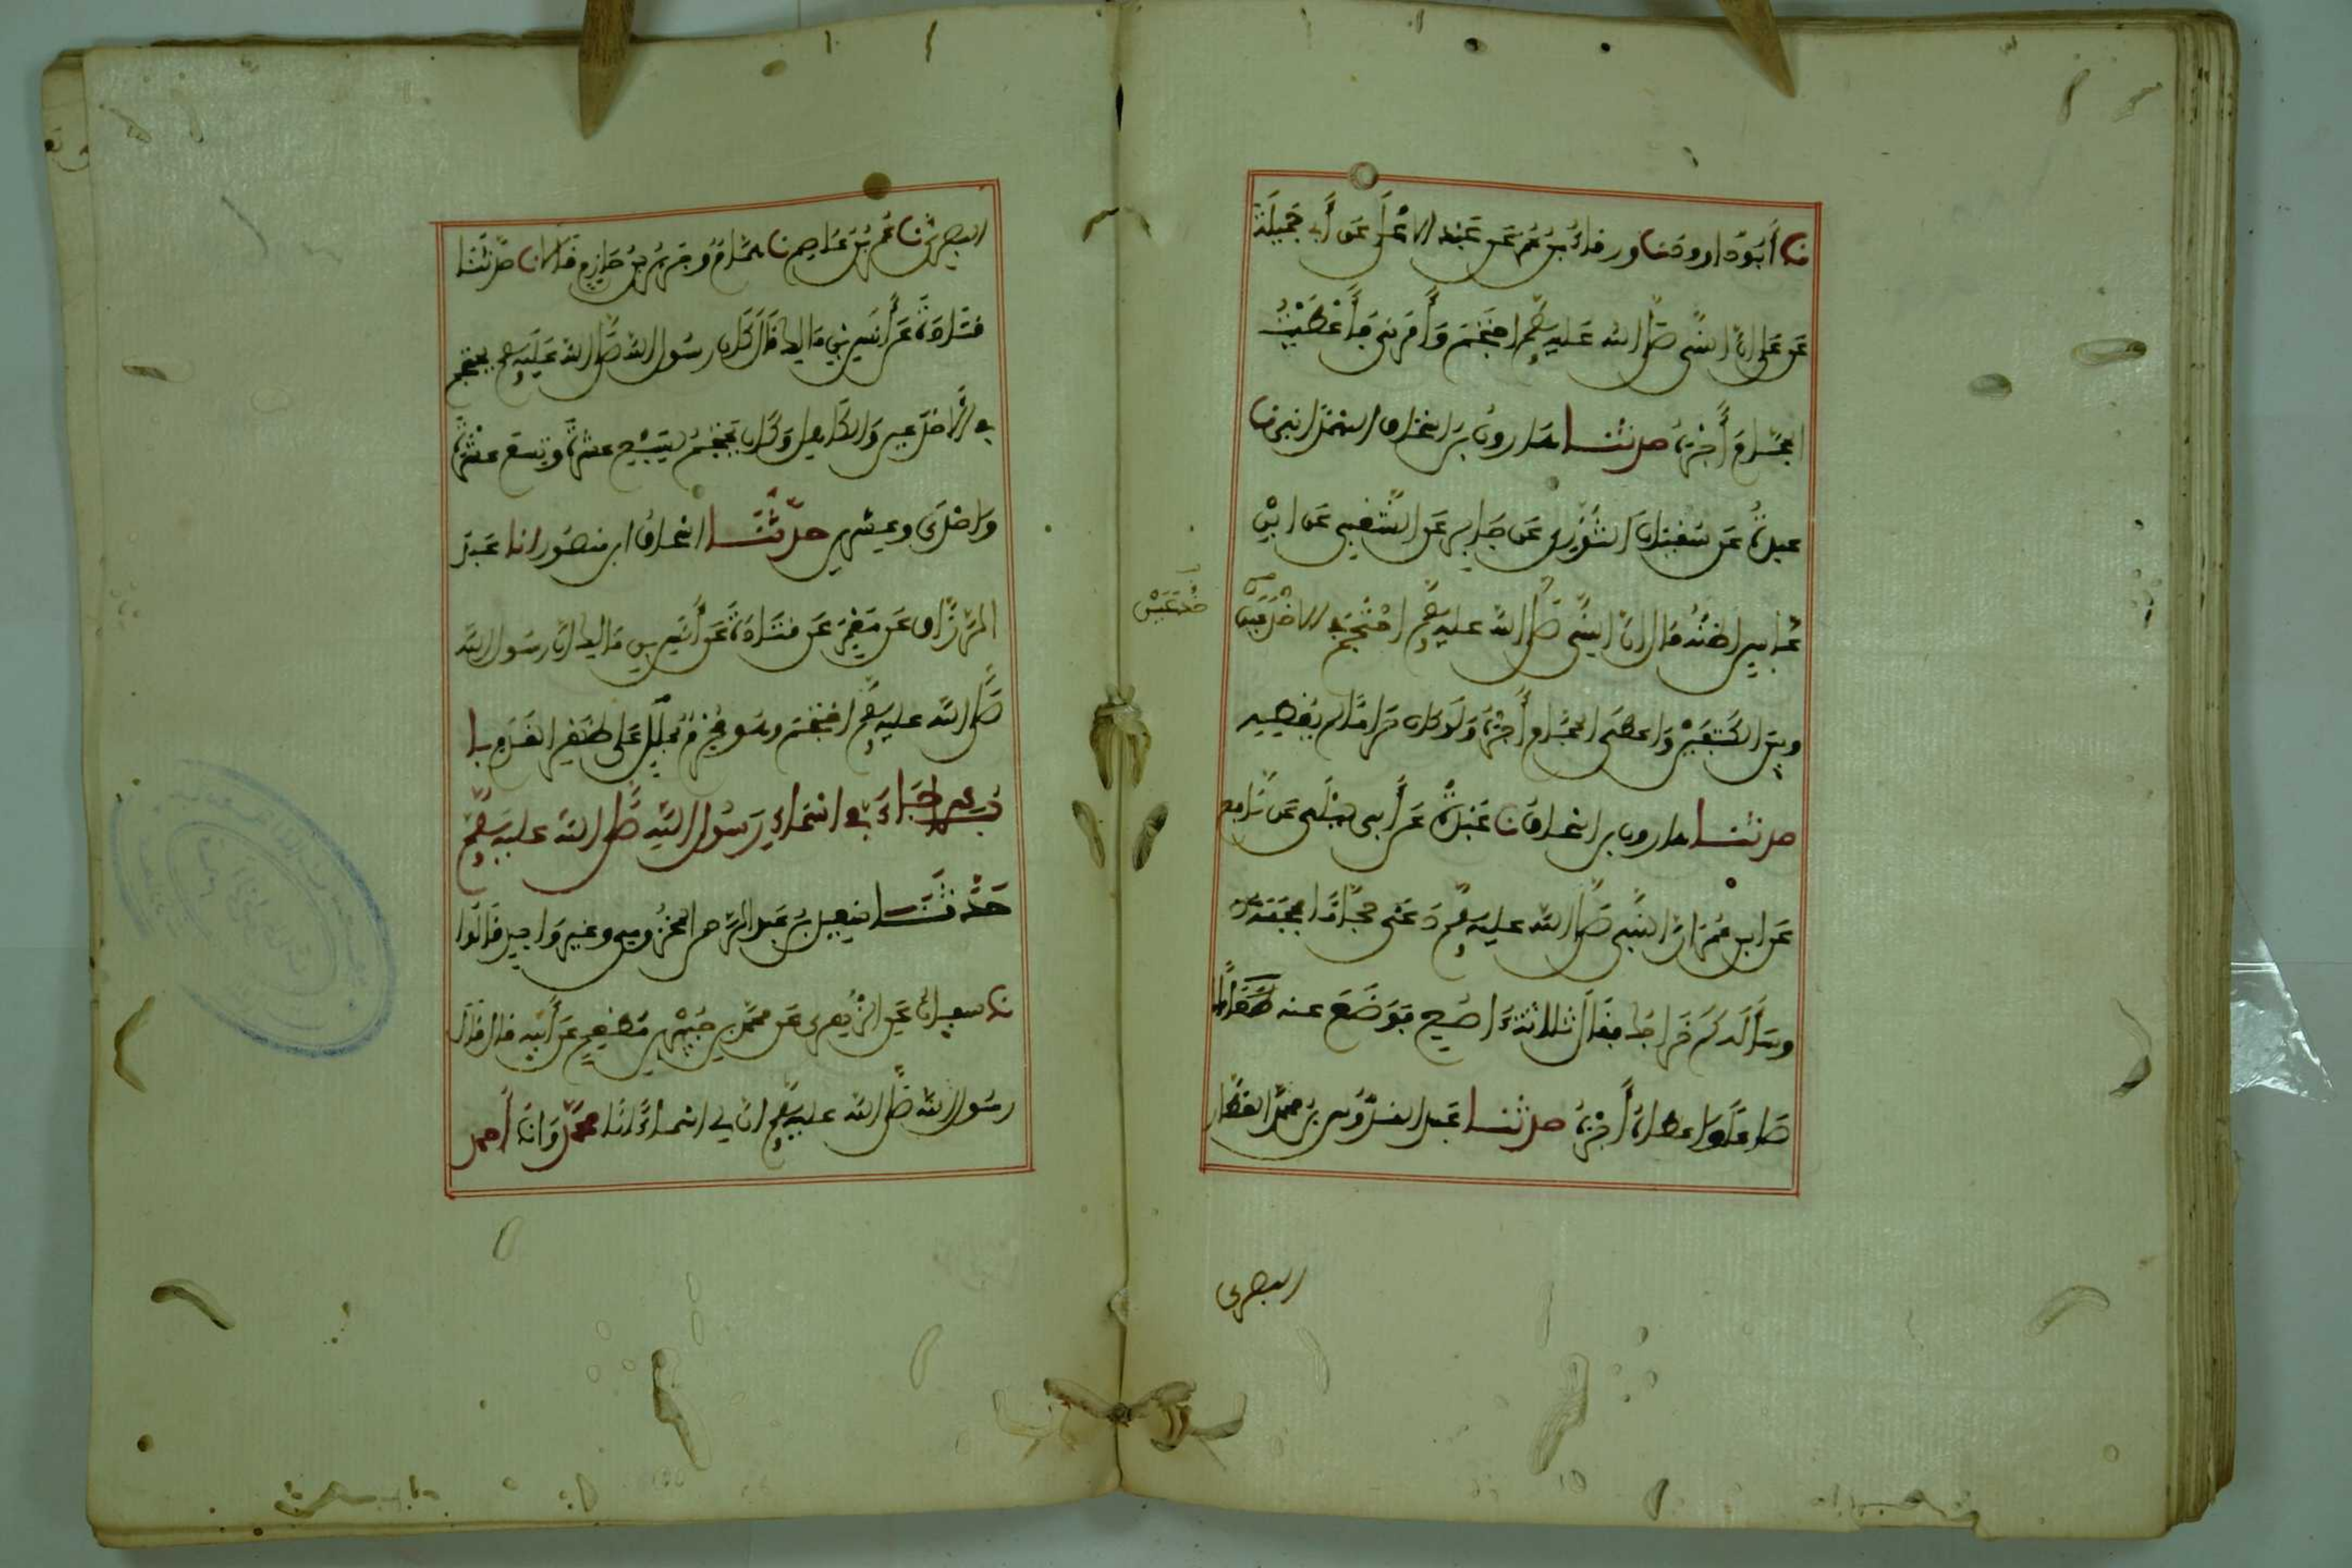 نا أَبُو داود نا ورقاءُ بنُ عُمَرَ عن عَبْدِ الأعْلَى عن أَبي جَمِيلَةَ
عَن عَلي انَّ النَّبي صَلَّى الله عَلَيهِ وسَلَّم احْتَجَمَ وَأَمَرَنِي فَأَعْطَيْتُ
الحَجَّامَ أَجْرَهُ حدثنا هَارونُ بنُ اسْحاقَ الهَمْدَانِي نا
عبدةُ عَن سُفْيَانَ الثَّوْرِي عَن جَابِرٍ عَن الشَّعْبِي عَن ابْنِ
عَبّاسٍ أظنُّه قال انَّ النَّبي صَلَّى الله عليهِ وسَلَّم احْتَجَمَ في الأخْدَعَيْنِ
خْدَعَيْن
وبيْنَ الكَتِفَيْنِ وَاعطَى الحَجَّامَ أَجْرَهُ وَلَو كانَ حَرَامًا لم يُعْطِهِ
حدثنا هارون بن اسْحاق نا عَبْدَةُ عَن ابِي لَيْلَى عَن نَافِع
عَن ابنِ عُمَرَ انَّ النَّبي صَلَّى الله عليهِ وسَلَّم دَعَى حَجَّامًا فحَجَمَهُ
وسَأَلَه كَمْ خَرَاجُكَ فقالَ ثلاثةُ اصُعٍ فَوَضَعَ عنه
صَاعًا وَاعطَاهُ أَجْرَهُ حدثنا عبد القدُّوسِ بنُ محمَّد العَطَّار
البصري
البصرِيُّ نا عَمْرُو بنُ عَاصِمٍ نا هَمَّامٌ وجَرِيرُ بنُ حَازِمٍ قَالا نا حدَّثَنَا
قَتَادَةُ عَن أَنَسِ بنِ مَالِك قَالَ كَانَ رسُولُ الله صَلَّى الله عَلَيهِ وسَلَّم يَحتَجِمُ
في الأَخْدَعَينِ وَالكَاهِلِ وَكَانَ يَحْتَجِمُ لِسَبْعِ عشْرَةَ وتِسْعَ عَشْرَةَ
وَاحْدَى وعِشرِينَ حدَّثَنَا اسْحاقُ ابنُ مَنصُورٍ انا عَبدُ
الرَّزَّاقِ عَن مَعْمَرٍ عَن قَتَادَةَ عَن أَنَسِ بنِ مَالِك انَّ رسُولَ الله
صَلَّى الله عليهِ وسَلَّم احْتَجَمَ وهُوَ مُحْرِمٌ بمَلَلٍ عَلى ظَهْرِ القَدَمِ با
بُ مَا جَاءَ في اسْمَاءِ رَسُولِ اللهِ صَلَّى الله عليه وسَلَّم
حَدَّثَنَا سَعِيدُ بنُ عَبدِ الرَّحمن المَخْزُومِي وغَيرُ وَاحِدٍ قَالُوا
نا سفيانُ عَنِ الزُّهرِي عَن محمَّد بنِ جُبَيْرِ بنِ مُطْعِمٍ عَن أَبِيهِ قال قالَ
رسُولُ الله صَلَّى الله عليهِ وسَلَّم انَّ لي اسْماءً انَا محمَّدٌ وَانَا أَحمد